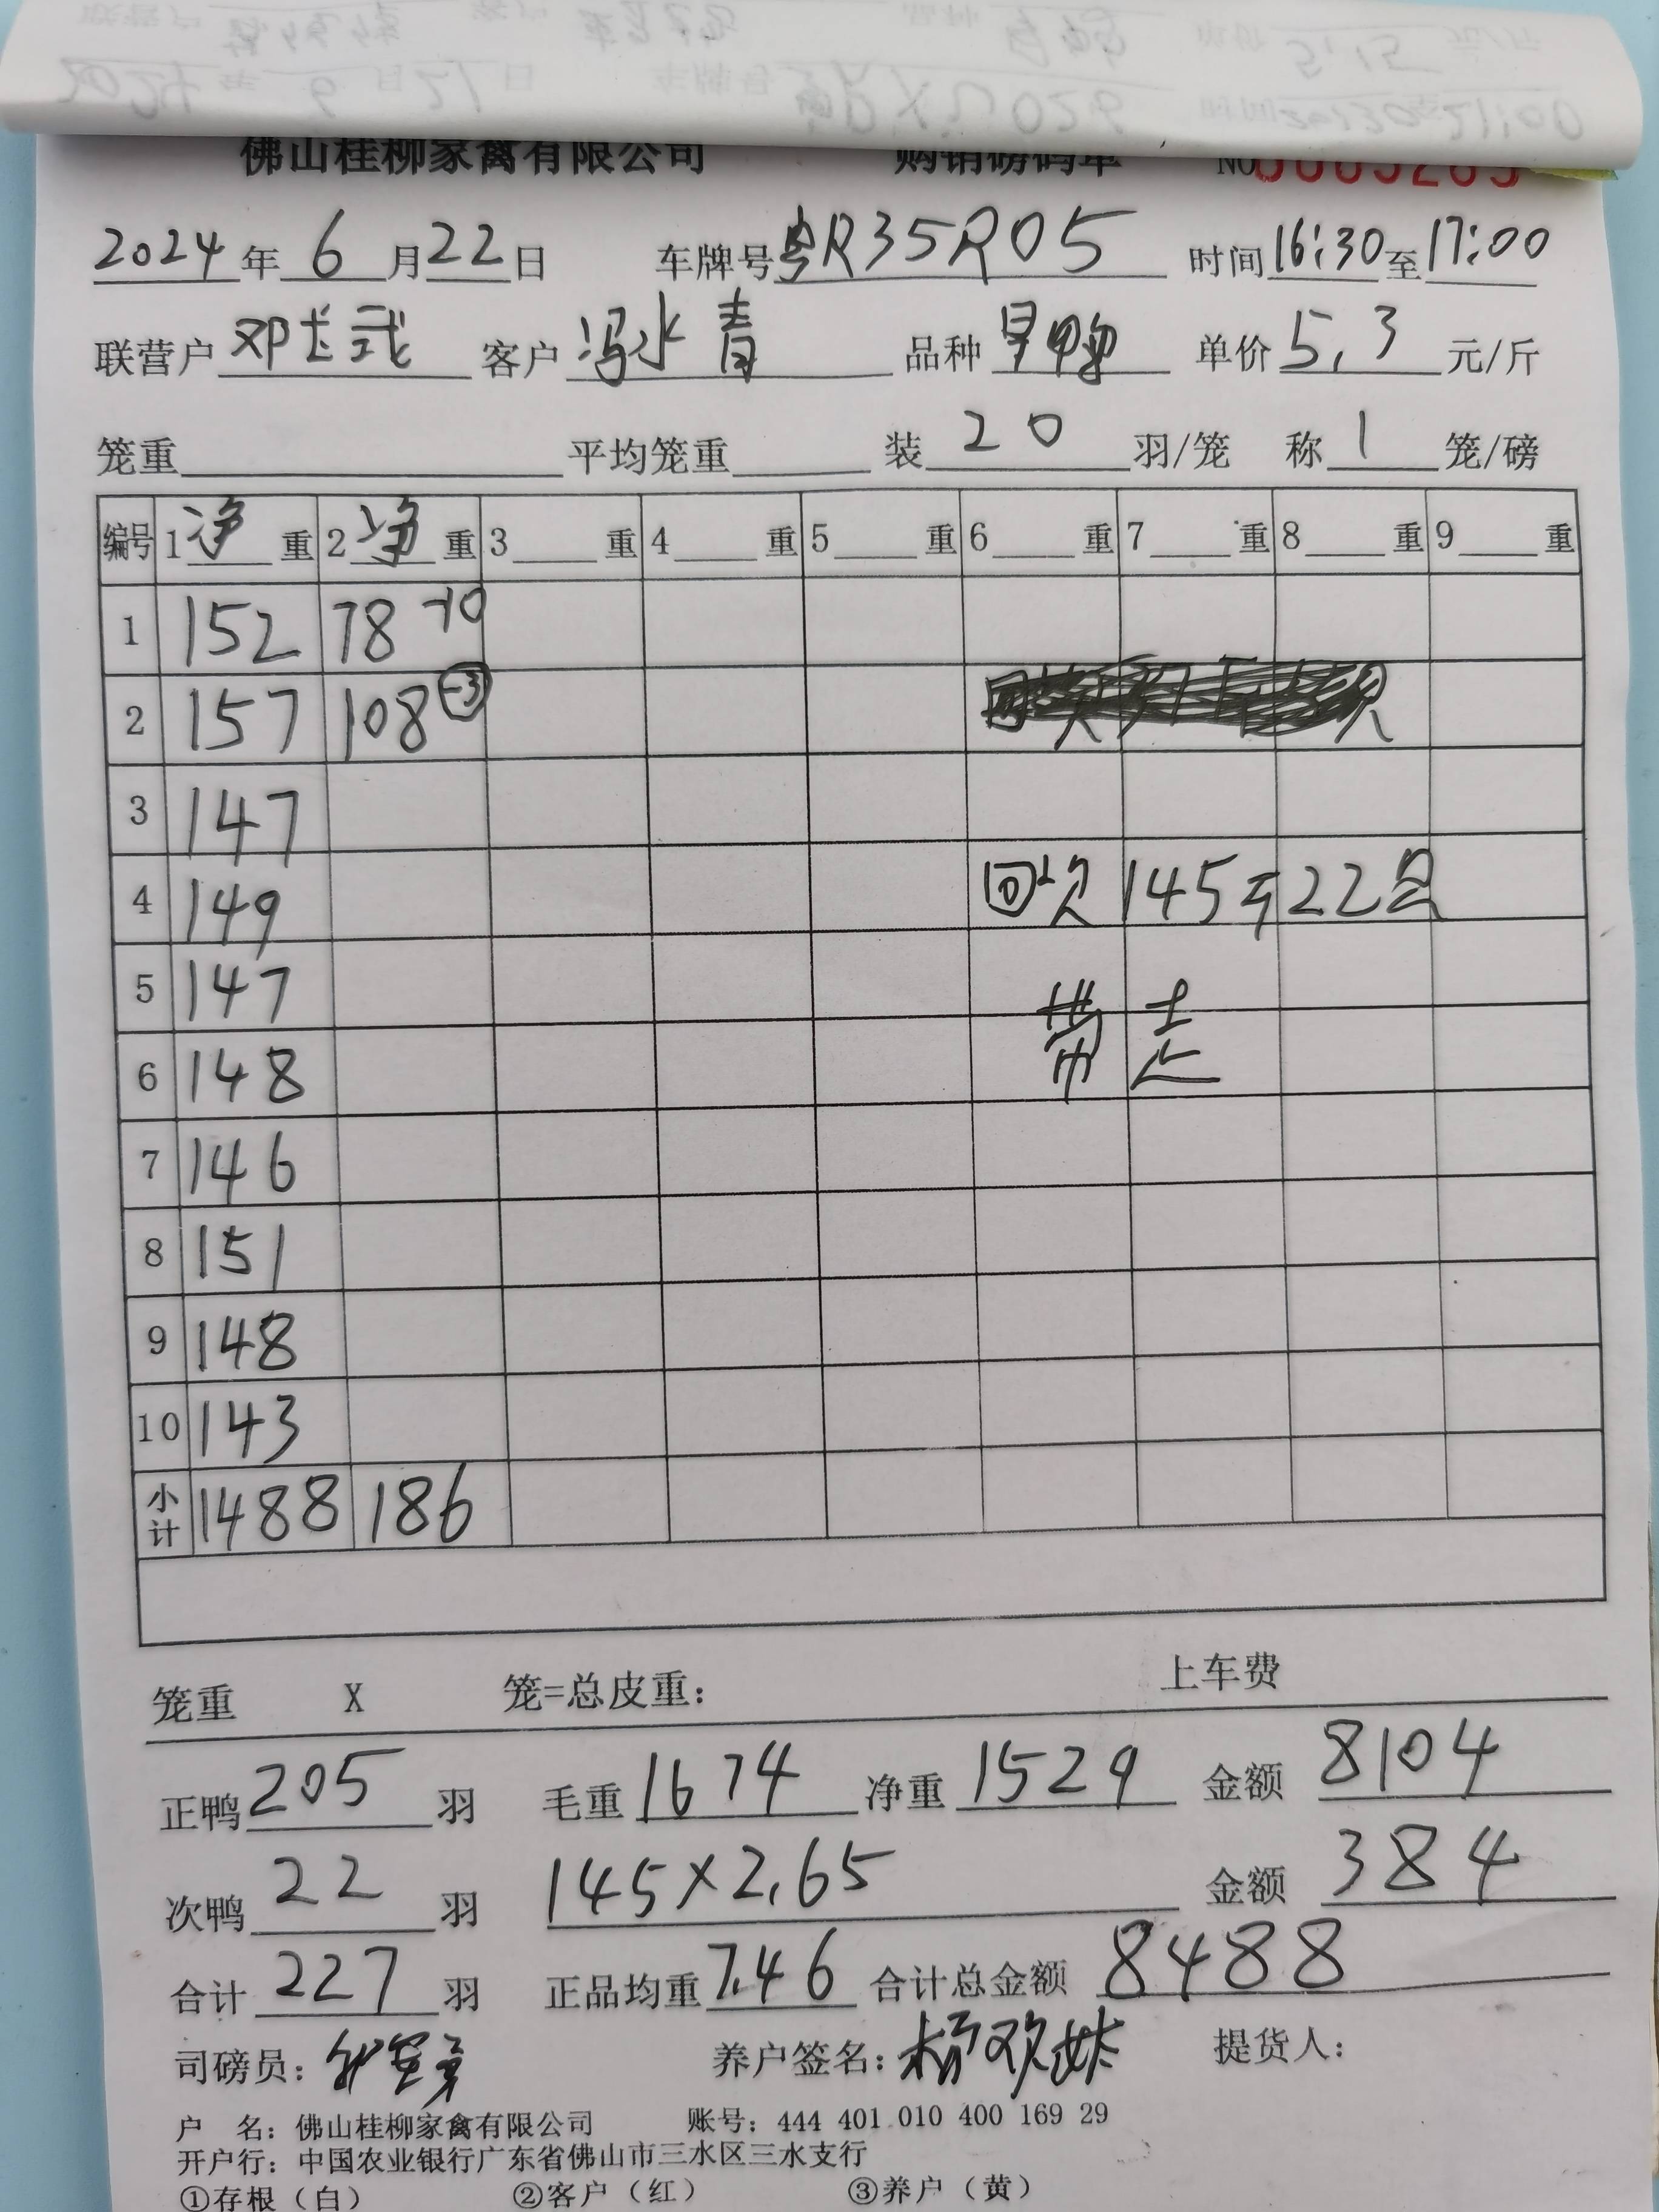 佛山桂柳家禽有限公司 购销磅码单 NO
2024年6月22日 车牌号粤R35R05 时间16:30至17:00
联营户 邓 武 客户 冯水青 品种 旱鸭 单价5.3元/斤
笼重 平均笼重 装 20 羽/笼 称 1 笼/磅
编号 1净重 2净重 3 重 4 重 5 重 6 重 7 重 8 重 9 重
1 152 78 -10
2 157 108 -3
3 147
4 149 回次 145斤22只
5 147 带走
6 148
7 146
8 151
9 148
10 143
小计 1488 186
笼重 X 笼=总皮重: 上车费
正鸭205羽 毛重1674 净重1529 金额8104
次鸭22羽 145×2.65 金额384
合计227羽 正品均重7.46 合计总金额8488
司磅员: 养户签名:杨欢妹 提货人:
户 名:佛山桂柳家禽有限公司 账号:444 401 010 400 169 29
开户行:中国农业银行广东省佛山市三水区三水支行
①存根（白） ②客户（红） ③养户（黄）